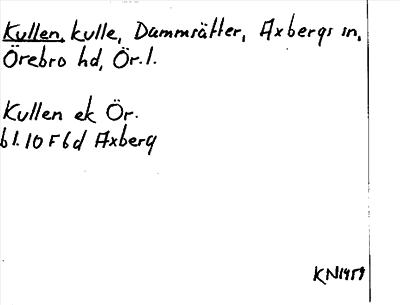 Kullen, kulle, Dammsätter, Axbergs sn,
Örebro hd, Ör.l.
Kullen ek Ör.
bl.10 F6d Axberg
KN1959